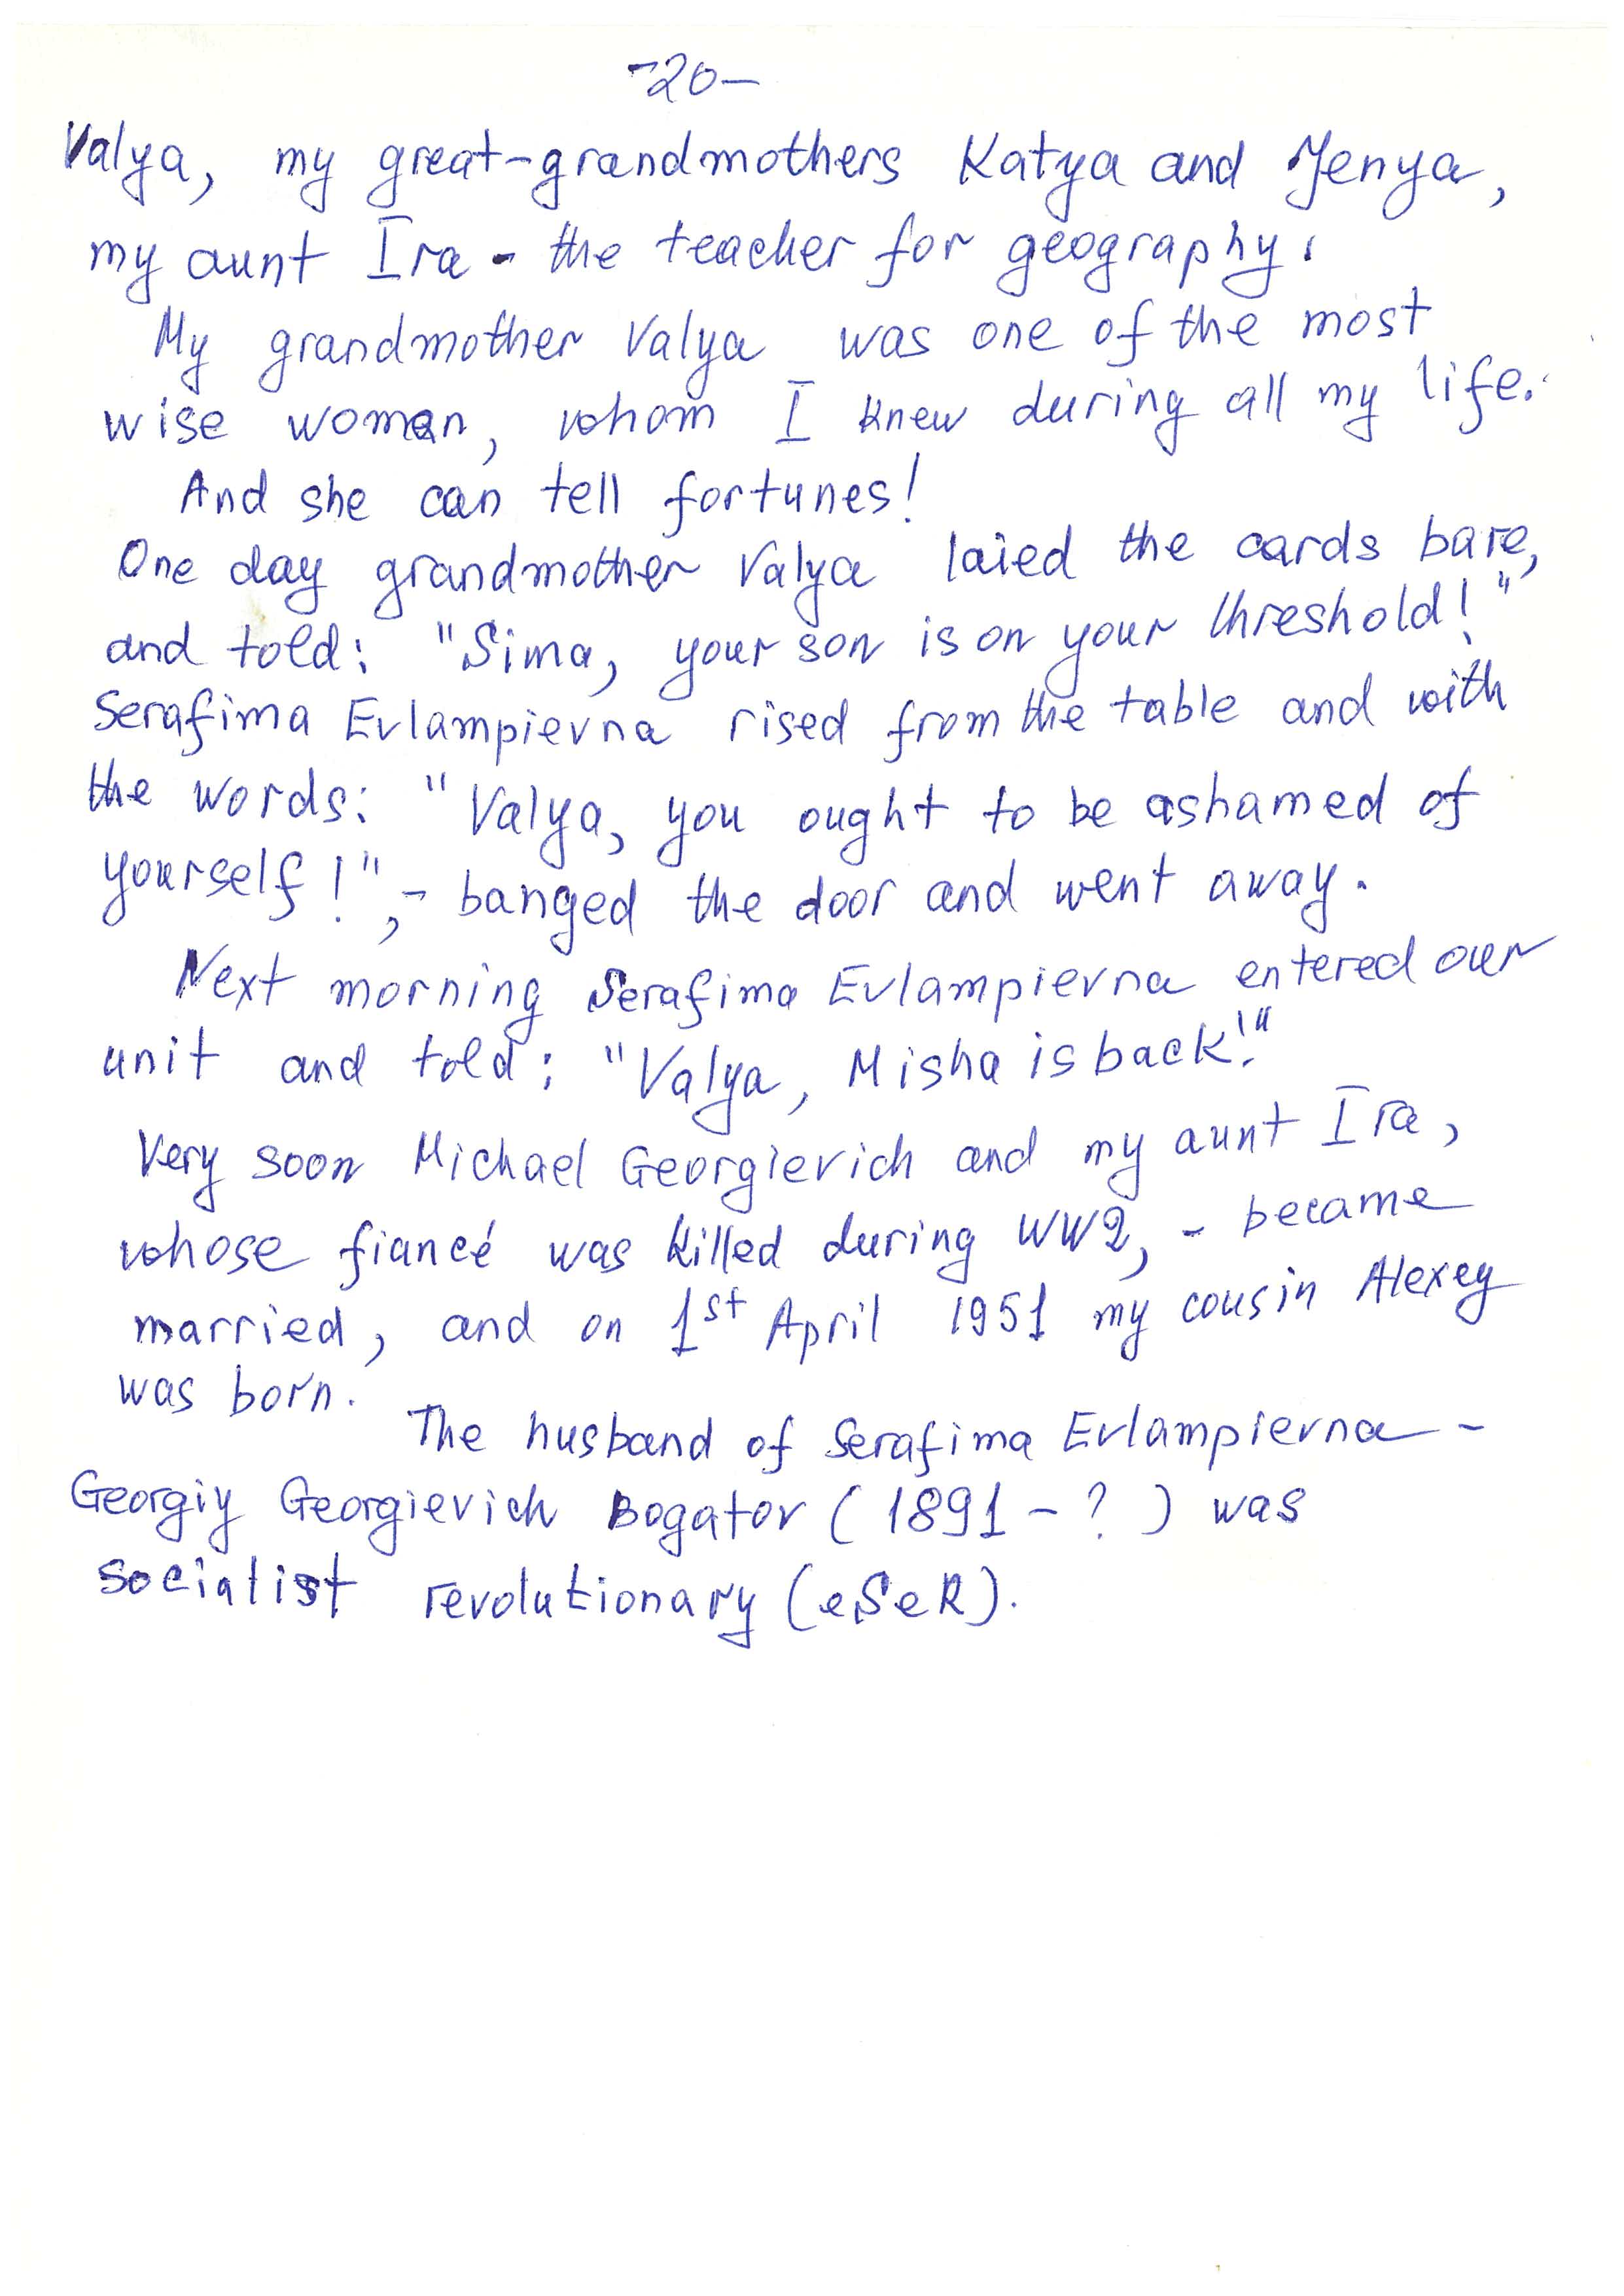 -20-
Valya, my great-grandmothers Katya and Jenya,
my aunt Ira - the teacher for geography.
My grandmother Valya was one of the most
wise woman, whom I knew during all my life.
And she can tell fortunes!
One day grandmother Valya laied the cards bare,
and told: "Sima, your son is on your threshold!"
Serafima Evlampievna rised from the table and with
the words: "Valya, you ought to be ashamed of
yourself!", - banged the door and went away.
Next morning Serafima Evlampievna entered our
unit and told: "Valya, Misha is back!"
Very soon Michael Georgievich and my aunt Ira,
whose fiancé was killed during WW2, - became
married, and on 1st April 1951 my cousin Alexey
was born.
The husband of Serafima Evlampievna -
Georgiy Georgievich Bogatov (1891 - ?) was
socialist revolutionary (eSeR).